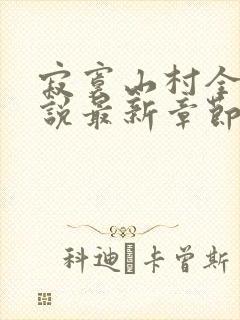 寂寞山村全
说最新章节
科迪·卡曾斯